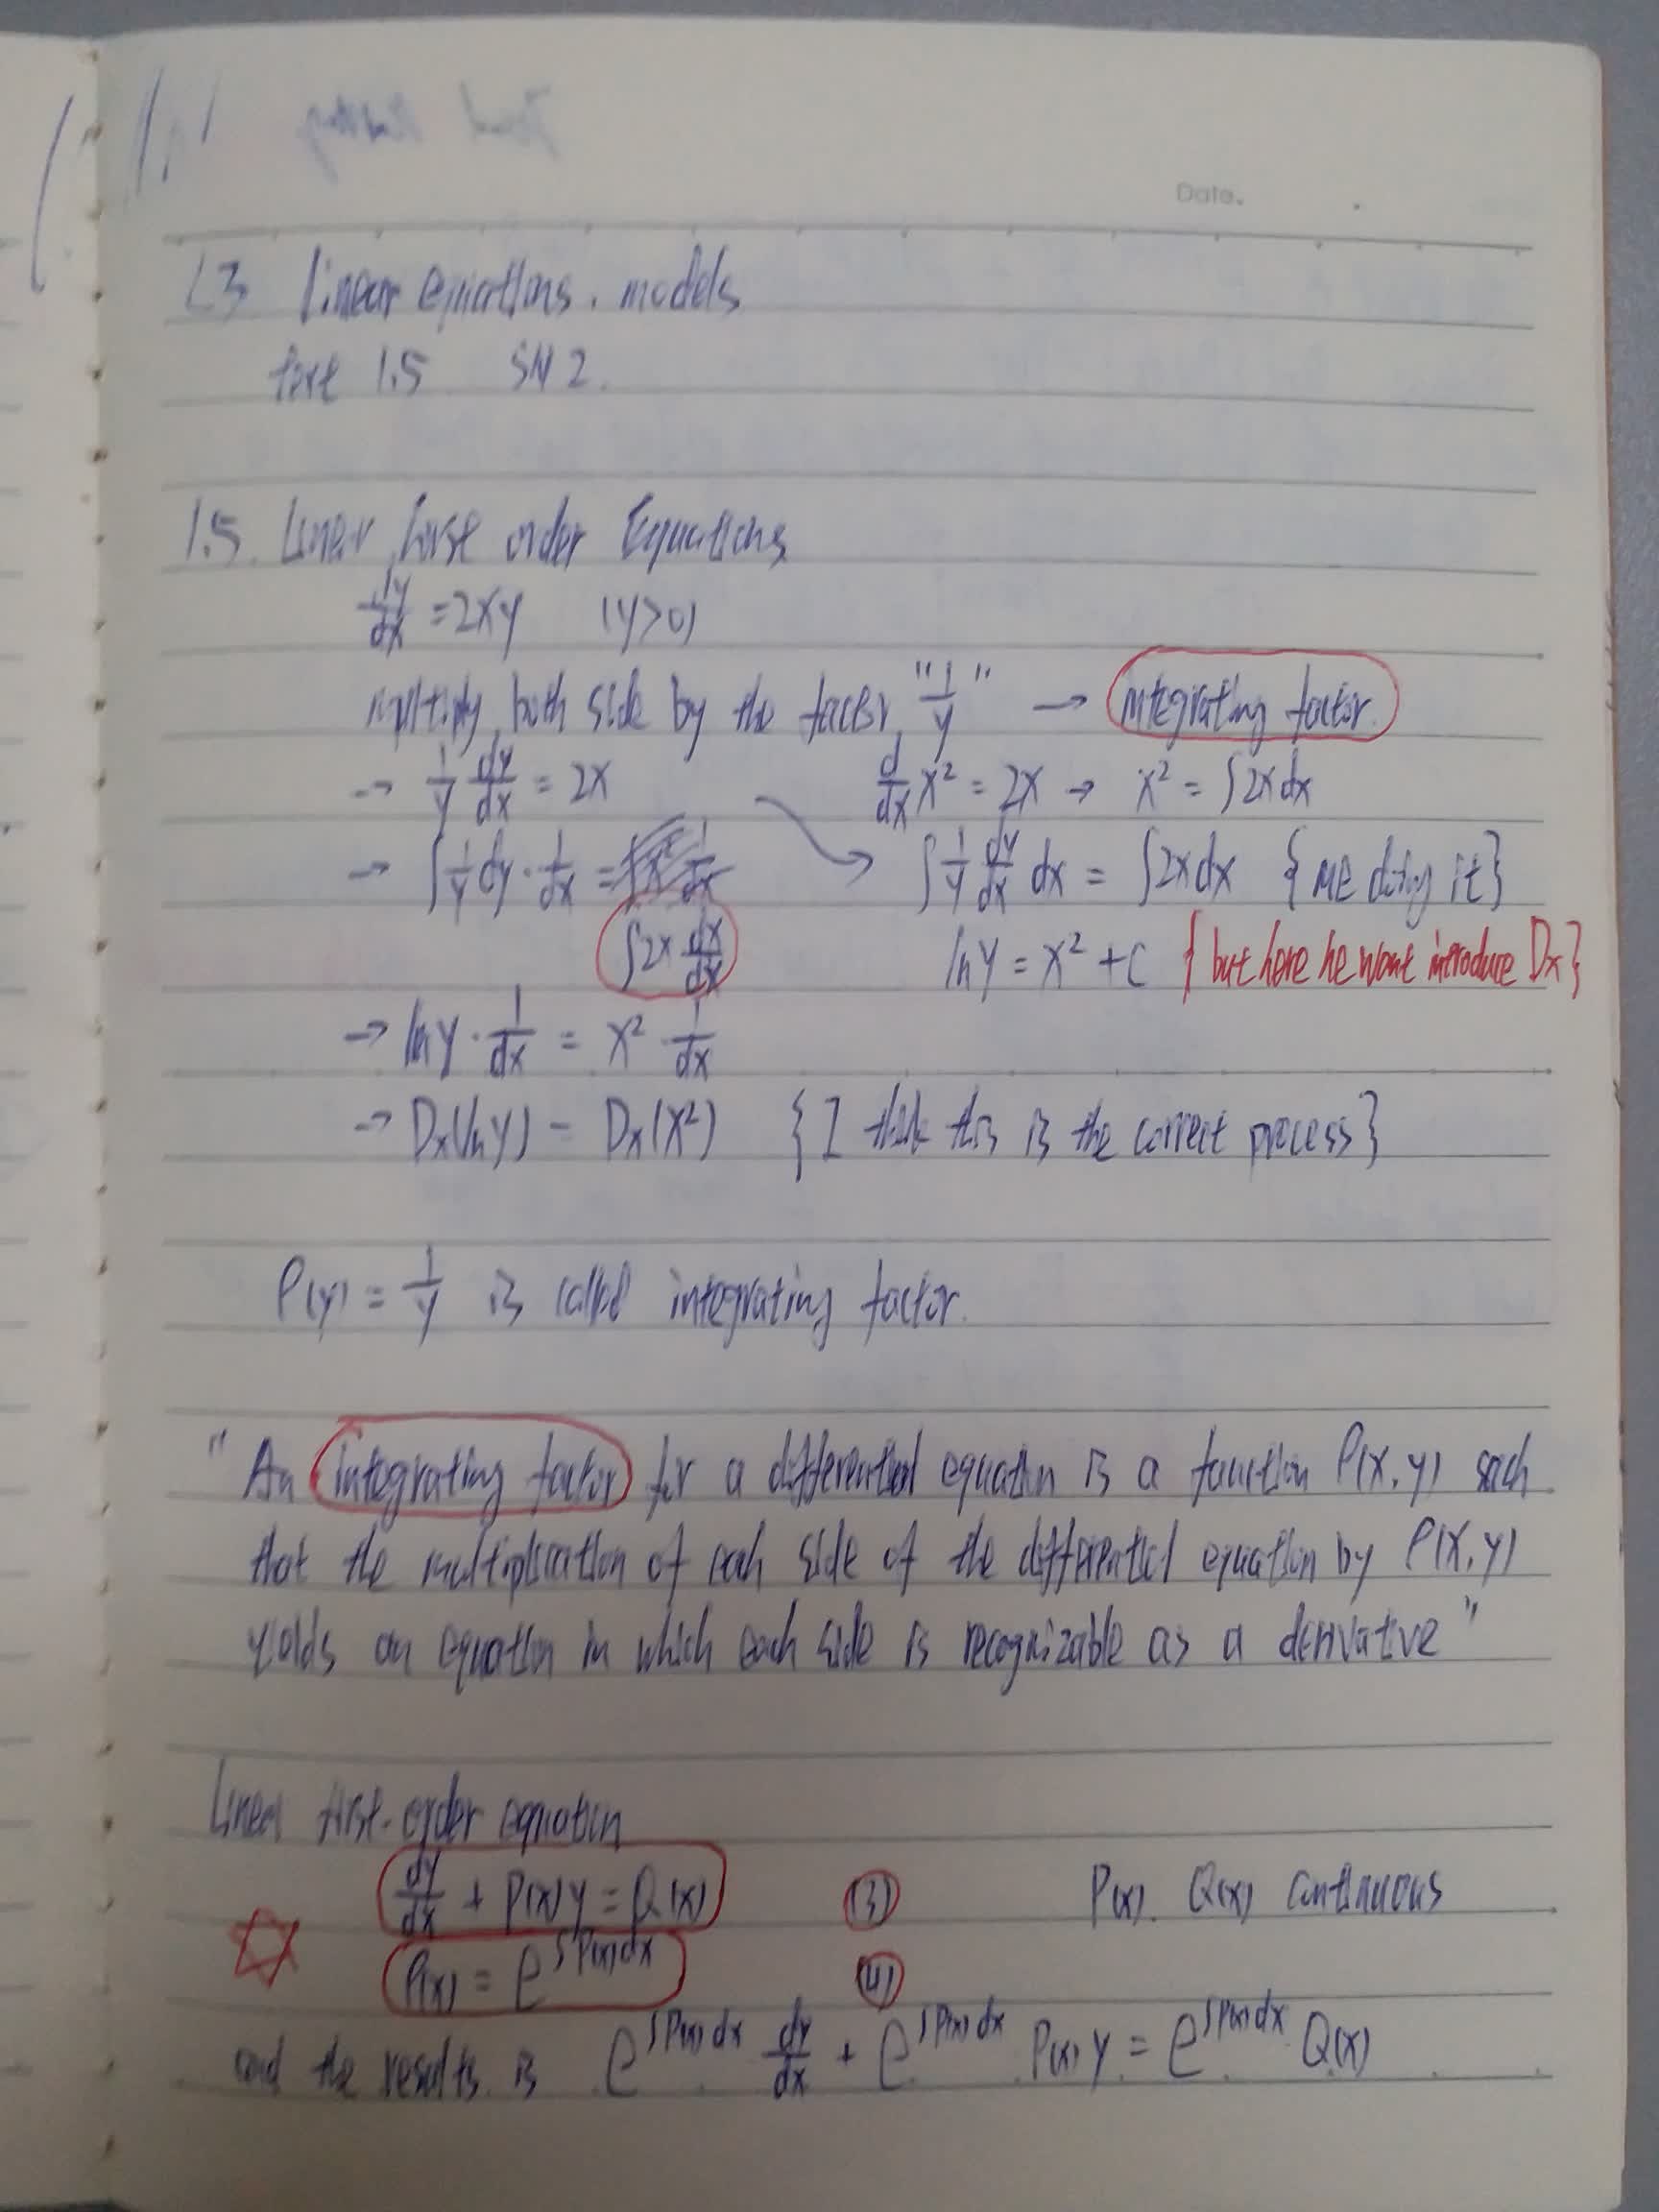 Date.
L3 linear equations. models
text 1.5 SN 2.
1.5. Linear first order Equations
dy/dx = 2xy (y>0)
multiply both side by the factor "1/y" → integrating factor.
→ 1/y dy/dx = 2x d/dx x² = 2x → x² = ∫2x dx
→ ∫1/y dy · 1/dx = ∫2x dx/dx ∫1/y dy/dx dx = ∫2x dx {ME doing it}
ln y = x² + C { but here he want introduce Dx}
→ ln y · 1/dx = x² · 1/dx
→ Dx(ln y) = Dx(x²) {I think this is the correct process}
ρ(y) = 1/y is called integrating factor.
" An integrating factor for a differential equation is a function ρ(x,y) such
that the multiplication of each side of the differential equation by ρ(x,y)
yields an equation in which each side is recognizable as a derivative "
Linear first-order equation
dy/dx + P(x)y = Q(x) (3) P(x). Q(x) continuous
ρ(x) = e^∫P(x)dx (4)
and the results is e^∫P(x)dx dy/dx + e^∫P(x)dx P(x) y = e^∫P(x)dx Q(x)